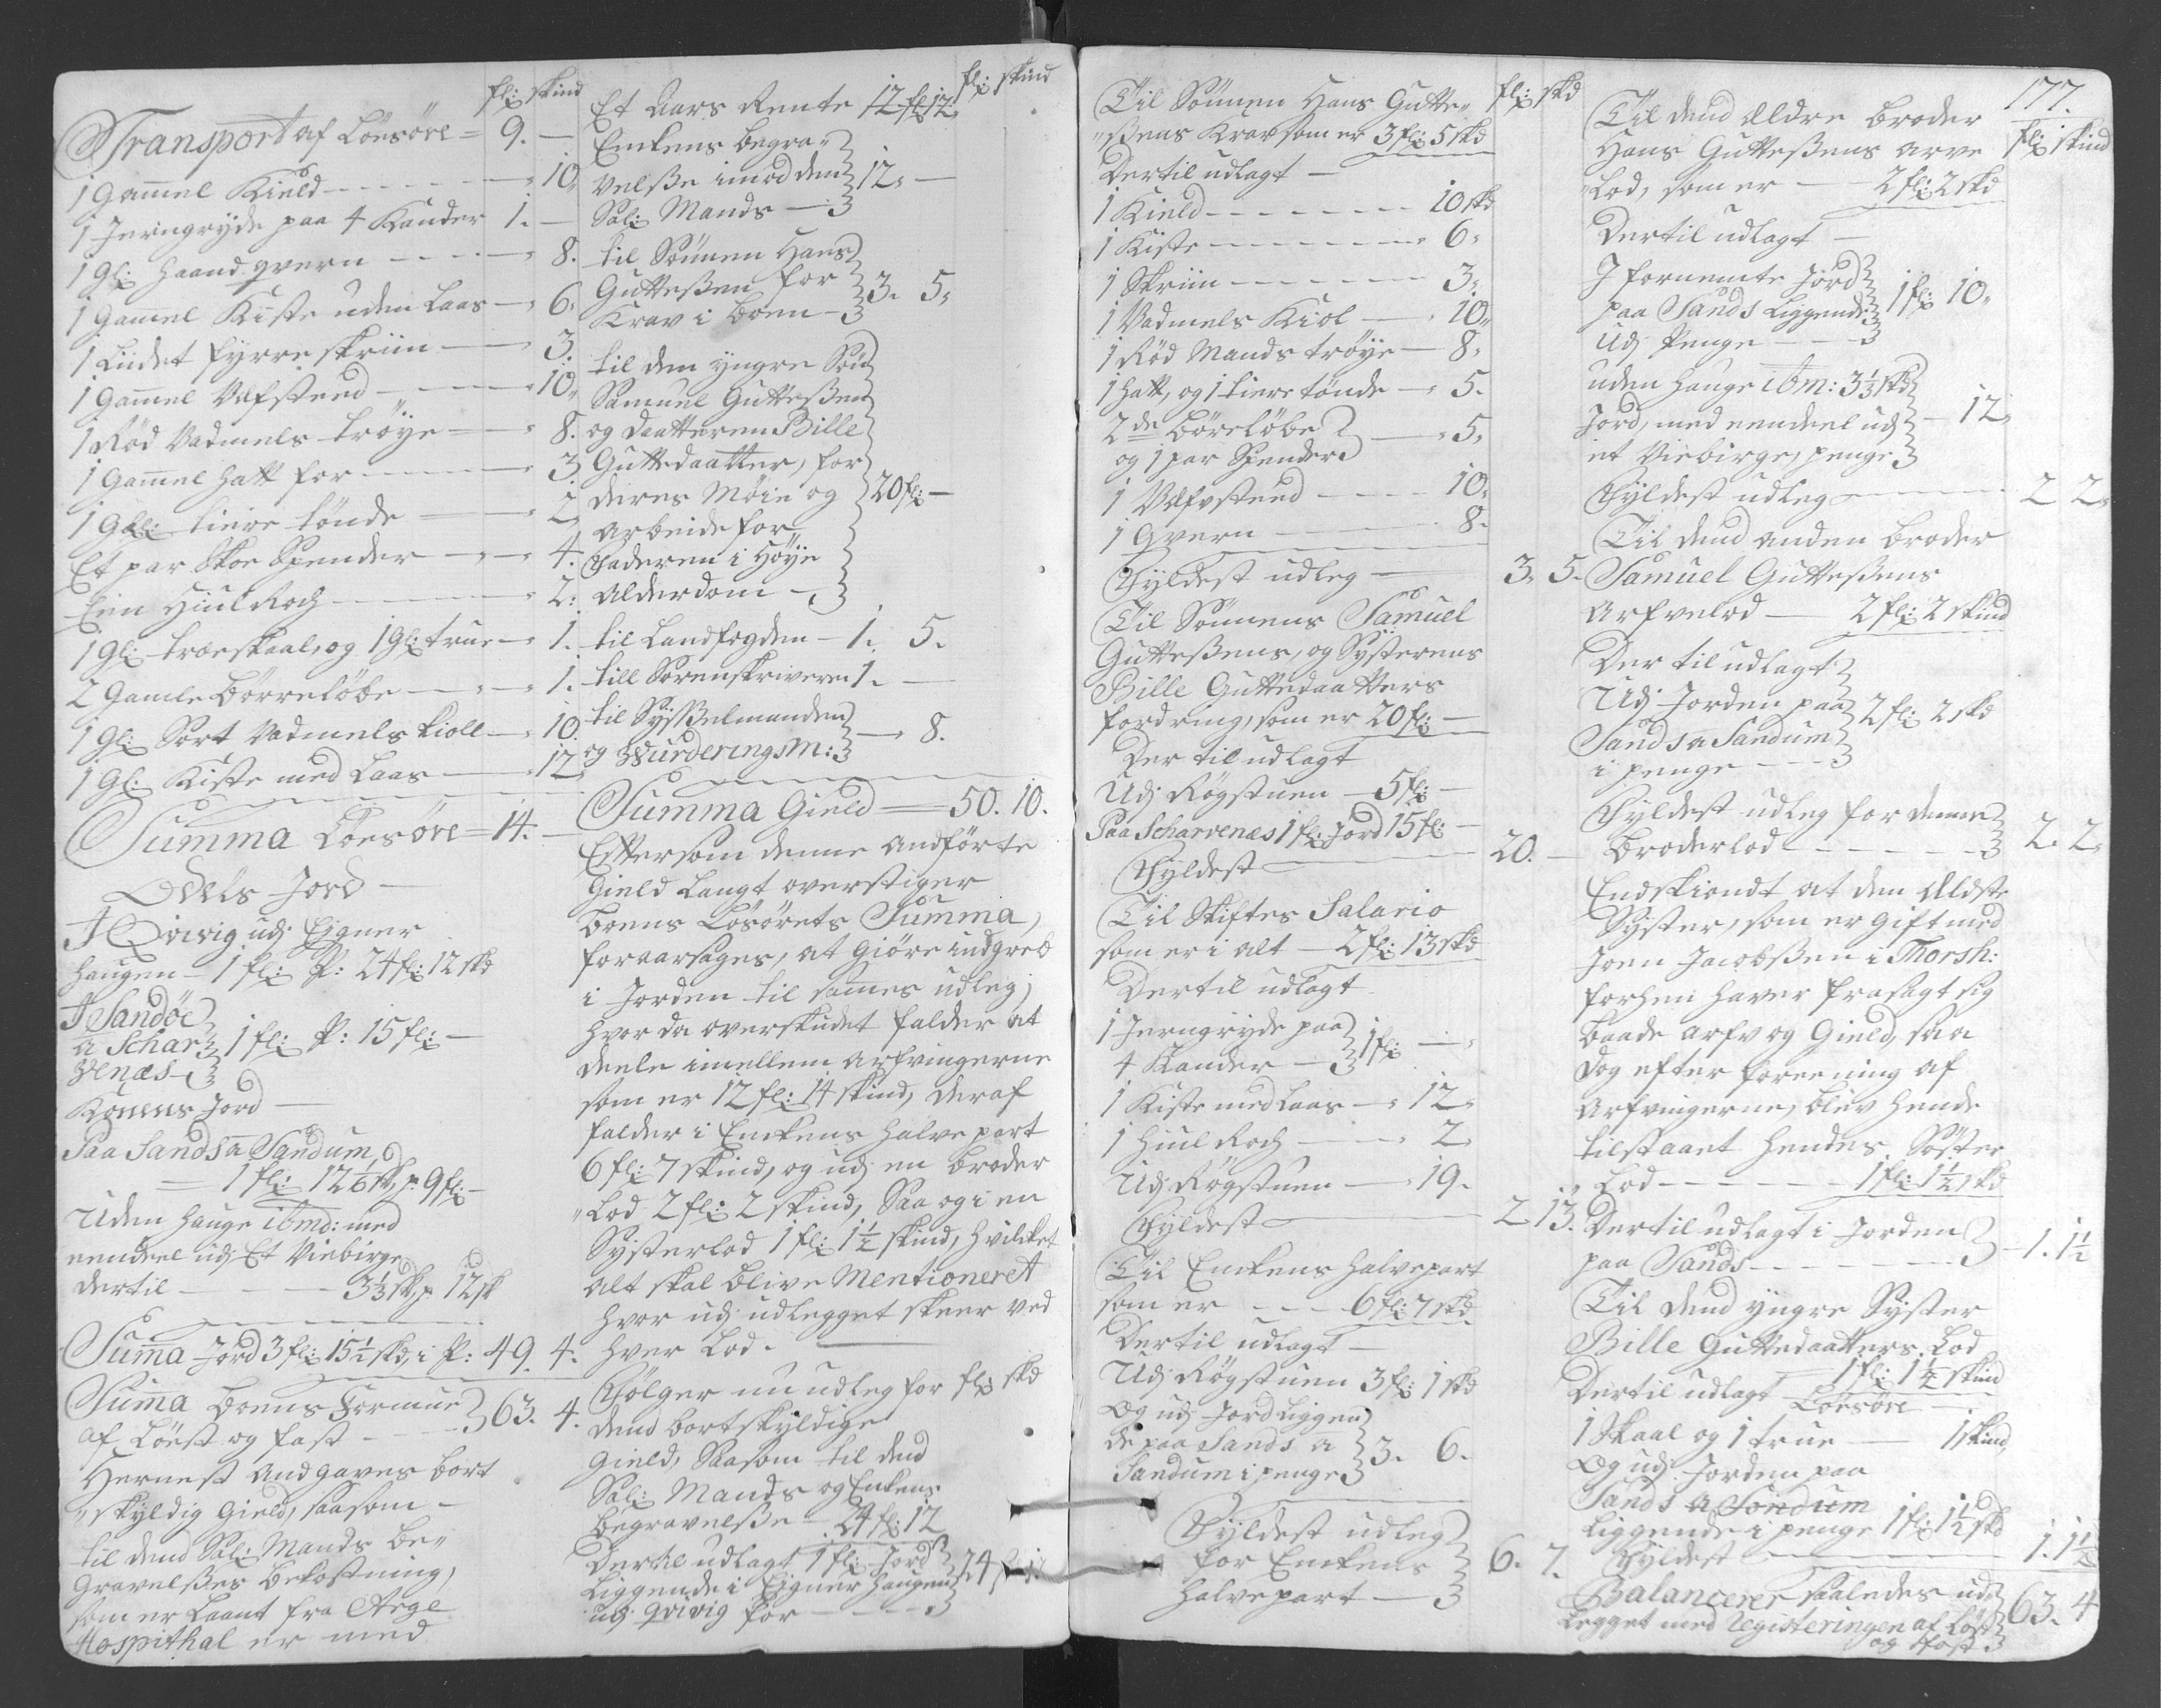 fl: skind
Transport af Löesöre = 9. —
1 Gam̄el Kield — 10.
1 Jerngryde paa 4 Kander 1. —
1 gl: haand qvern — 8.
1 Gam̄el Kiste uden Laas — 6.
1 Liidet fyrre skriin — 3.
1 Gam̄el Vefsteed — 10.
1 Rød Vadmels Tröye — 8.
1 Gam̄el hatt for — 3
1 gl: tiere tönde — 2.
Et par Skoe Spender — 4.
Een Hiul Roch — 2:
1 gl: træskaal, og 1 gl: true — 1.
2 Gamle Börrelöbe — 1.
1 gl: Sort Vadmels kioll — 10.
1 gl: Kiste med Laas — 12
Summa Löesöre = 14. —
Odels Jord —
I Qvivig udj Eigner
haugen — 1 fl: P: 24 fl: 12 skd
I Sandöe
a Schar
venæs — 1 fl: P: 15 fl: —
Konens Jord —
Paa Sands a Sandum,
1 fl: 12 1/6 sk, p: 9 fl: —
Uden hauge ibmd: med
eendeel udj Et Viebirge
dertil — 3 1/3 sk, p: 12 sk
Sum̄a Jord 3 fl: 15 1/2 skd, i P: 49. 4.
Sum̄a Boens Formue
af Löest og fast — 63. 4.
Hernest andgaves bort
„skyldig Gield, saasom —
til dend Sal: Mands Be„
gravelßes bekostning,
som er laant fra Arge
Hospithal er med
fl: skind
Et Aars Rente 12 fl 12:
Enkens begra„
velße imod den
Sal: Mands — 12. —
til Sönnen Hans
Gutteßen for
Krav i boen — 3. 5.
til den yngre Sön
Samuel Gutteßen
og Daatteren Bille
Guttedaatter, for
deres Möie og 20 fl: —
arbeide for
Faderen i Höye
alderdom —
til Landfogden — 1. 5.
till Sorenskriveren 1. —
til Syßelmanden
og Wurderingsm: — 8.
Summa Gield — 50. 10.
Eftersom denne andförte
Gield langt overstiger
Boens Lösörets Summa,
foraarsages, at giöre indgreb
i Jorden til sam̄es udleg;
hvor da overskudet falder at
deele imellem arfvingerne
som er 12 fl: 14 skind, deraf
falder i Enkens halve part
6 fl: 7 skind, og udj en broder
„Lod 2 fl: 2 skind, Saa og i en
Systerlod 1 fl: 1 1/2 skind, hvilket
alt skal blive Mentioneret
hvor udj udlegget skeer ved
hver Lod. —
Fölger nu udleg for fl: skd
dend bortskyldige
Gield, Saasom til dend
Sal: Mands og Enkens
begravelße — 24 fl: 12
Dertil udlagt 1 fl: Jord
liggende i Eigner haugen 24
udj Qvivig for —
fl: skd
Til Sönnen Hans Gutte„
„ßens Krav som er 3 fl: 5 skd
Dertil udlagt —
1 Kield — 10 skd
1 Kiste — 6.
1 Skriin — 3.
1 Vadmels Kiol — 10.
1 Röd Mands tröye — 8.
1 hatt, og 1 tiere tönde — 5.
2de Börelöbe
og 1 par Spender — 5.
1 Vefvsteed — 10.
1 Qvern — 8.
Fyldest udleg — 3. 5.
Til Sönnens Samuel
Gutteßens, og Systerens
Bille Guttedaatters
fordring, som er 20 fl: —
Der til udlagt
Udj Rögstuen — 5 fl: —
Paa Scharvenæs 1 fl: Jord 15 fl: —
Fyldest — 20. —
Til Skiftes Salario
som er i alt — 2 fl: 13 skd
Dertil udlagt
1 Jerngryde paa
4 Kander — 1 fl: —
1 Kiste med Laas — 12.
1 Hiul Roch — 2.
Udj Rögstuen — 19.
Fyldest — 2 13.
Til Enkens halvepart
som er — 6 fl: 7 skd
Dertil udlagt —
Udj Rögstuen 3 fl: 1 skd
Og udj Jord liggen
de paa Sands a
Sandum i penge 3. 6.
Fyldest udleg
for Enkens
halvepart — 6. 7.
177.
fl: skind
Til dend Ældre broder
Hans Gutteßens arve
„Lod, som er — 2 fl: 2 skd
Dertil udlagt —
I fornemte Jord
paa Sands Liggende 1 fl: 10.
udj Penge —
uden hauge ibm: 3 1/3 skd
Jord, med eendeel udj — 12.
et Viebirge, penge
Fyldest udleg — 2 2.
Til dend anden broder
Samuel Gutteßens
Arfvelod — 2 fl: 2 skind
Der til udlagt
Udj Jorden paa 2 fl: 2 skd
Sands a Sandum
i penge —
Fyldest udleg for denne
broderlod — 2. 2.
Endskiondt at den Ældste
Syster, som er gift med
Joen Jacobßen i Thorsh:
forhen haver frasagt sig
baade arf og Gield, saa
dog efter foreening af
Arfvingerne, blev hende
tilstaaet hendes Söster
„Lod — 1 fl: 1 1/2 skd
Dertil udlagt i Jorden
paa Sands — 1. 1 1/2
Til dend yngre Syster
Bille Guttedaatters Lod
1 fl: 1 1/2 skind
Dertil udlagt Löesöre —
1 Skaal og 1 true — 1 skind
Og udj Jorden paa
Sands a Sondum
liggende i penge 1 fl: 1/2 skd
Fyldest — 1. 1 1/2
Balancerer saaledes ud„
legget med Registeringen af Löst
og Fast 63. 4